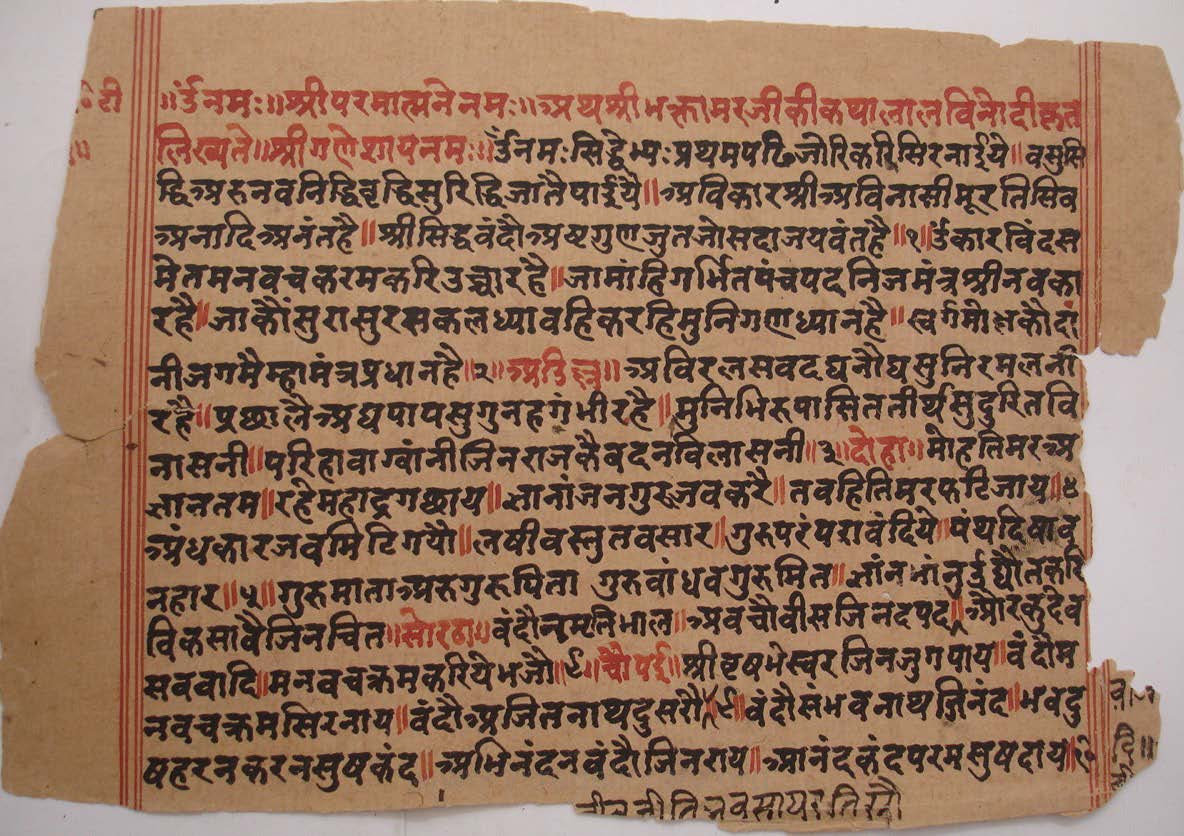 ॥र्ॐनमः॥श्रीपरमात्मनेनमः॥अथश्रीभक्तामरजीकीकथालालविनोदीकृत
लिख्यते॥श्रीगणेशायनमः॥र्ॐनमःसिद्धेभ्यःप्रथमपरिजोरिकरिसिरनाईये॥वसुसि
द्धिअरुनवनिद्धिवृद्धिसुरिद्धिजातैपाईयै॥अविकारश्रीअविनासीमूरतिसिव
अनादिअनंतहै॥श्रीसिद्धवंदौअष्टगुणजुतजोसदाजयवंतहै॥१॥र्ॐकारविंदस
मेतमनवचकरमकरिउच्चारहै॥जामांहिगर्भितपंचपदनिजमंत्रश्रीनवका
रहै॥जाकौंसुरासुरसकलध्यावहिकरहिमुनिगणध्यानहै॥स्वर्गमोक्षकौदां
नीजगमैम्हामंत्रप्रधानहै॥२॥अविरलसवदघनौघसुनिरमलनी
रहै॥प्रछालैअघपापसुगुनहगंभीरहै॥मुनिभिरुपासिततीर्थसुदुरितवि
नासनी॥परिहावाग्वांनीजिनराजकैवदनविलासनी॥३॥दोहा॥मोहतिमरअ
ज्ञानतम॥रहेमहाद्रगछाय॥ज्ञानांजनगुरुजवकरै॥तवहितिमरफटिजाय॥४
अंधकारजवमिटिगयौ॥लषीवस्तुतवसार॥गुरुपरंपरावंदिये॥पंथदिषाव
नहार॥५॥गुरुमाताअरुगुरुपिता गुरुवांधवगुरुमित॥ज्ञांनभांनुउद्योतकरि
विकसावैजिनचित॥सोरठा॥वंदौंनमृतिभाल॥अवचौवीसजिनंदपद॥औरकुदेव
सववादि॥मनवचक्रमकरियैभजौ॥६॥चौपई॥श्रीवृषभेस्वरजिनजुगपाय॥वंदौम
नवचक्रमसिरनाय॥वंदौअजितनाथदुसरौ॥वंदौसंभवनाथजिनंद॥भवदु
षहरनकरनसुषकंद॥अभिनंदनवंदौजिनराय॥आनंदकंदपरमसुषदाय॥